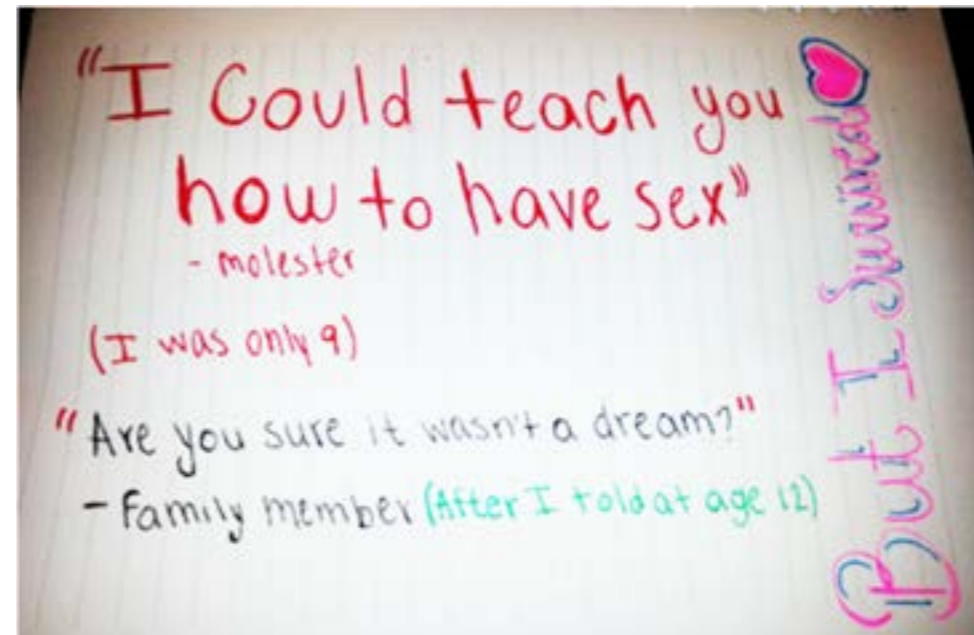 "I Could teach you
how to have sex"
- molester
(I was only 9)
"Are you sure it wasn't a dream?"
- Family member (After I told at age 12)
But I Survived